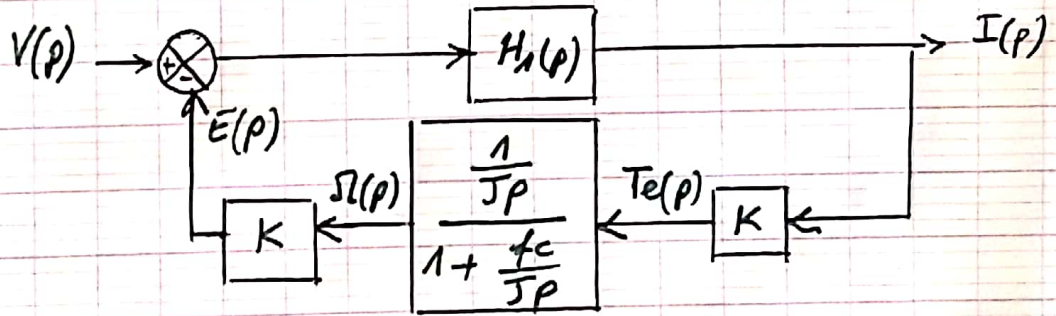 V(p)
+
-
H1(p)
I(p)
E(p)
K
Ω(p)
1
Jp
1 + fc
Jp
Te(p)
K